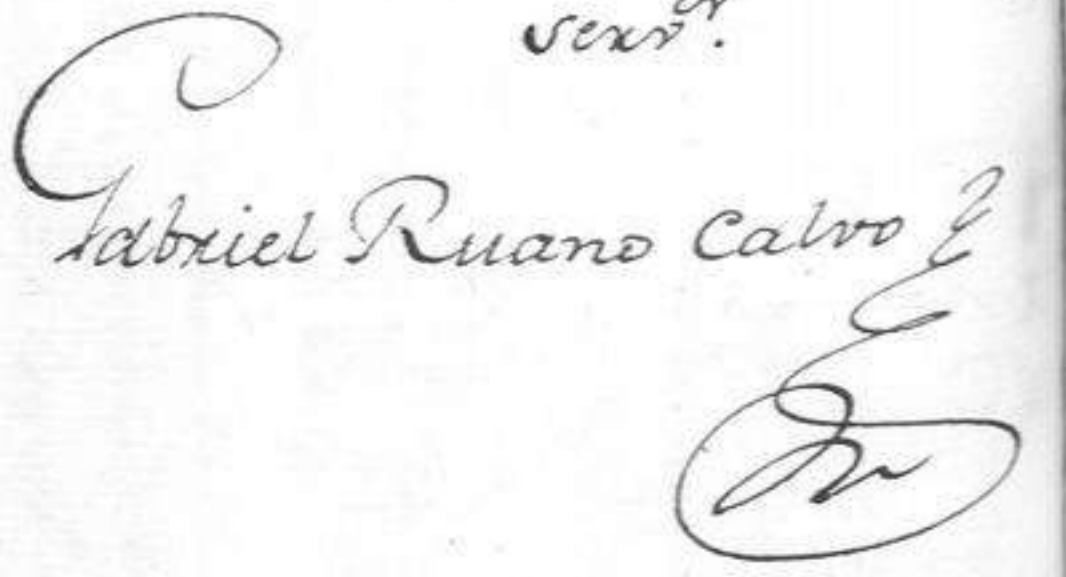 serv.ʳ
Gabriel Ruano Calvo